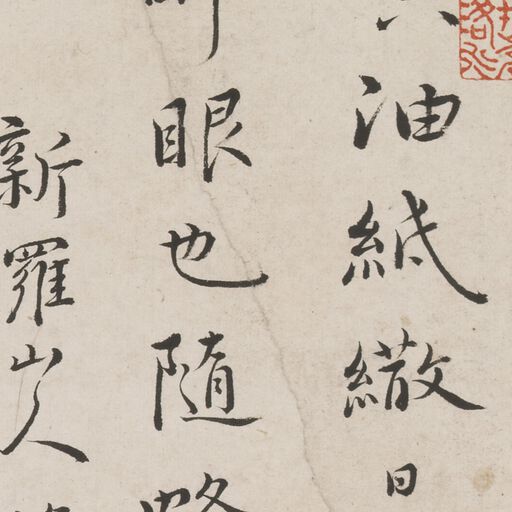 油紙繖日
眼也隨
新羅山人